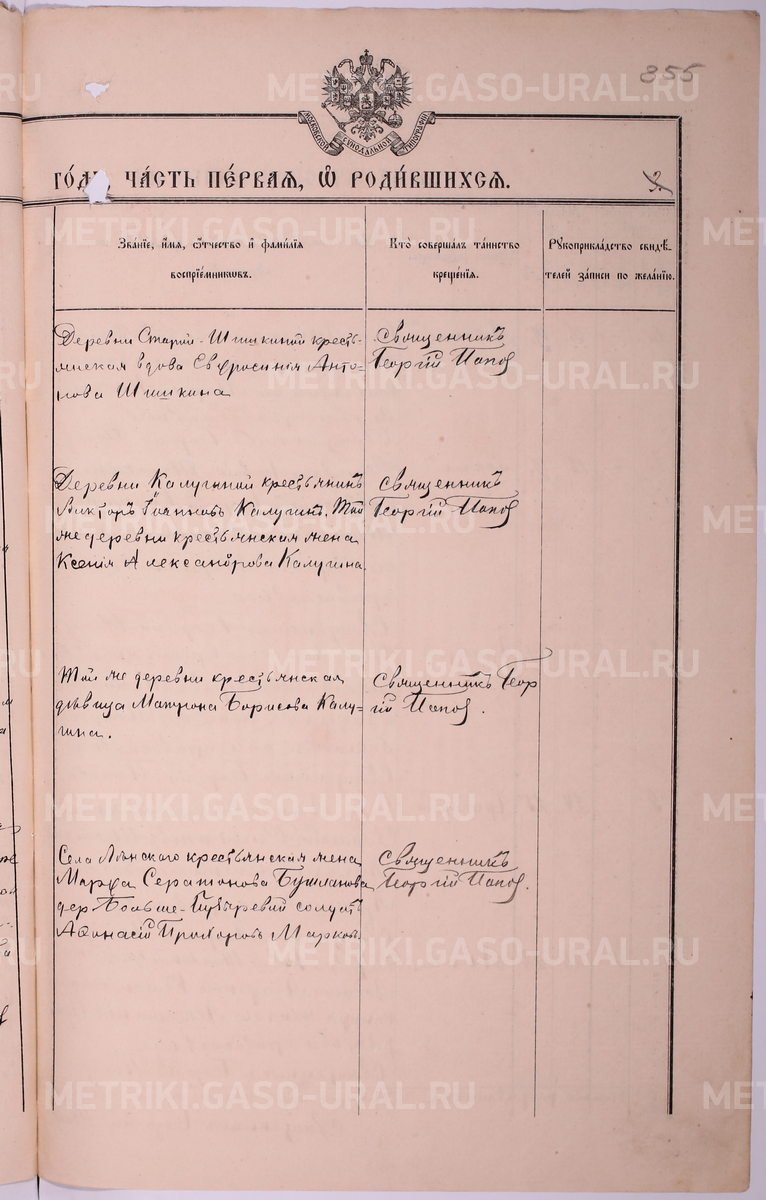 355
МОСКОВСКОЙ СѴНОДАЛЬНОЙ ТИПОГРАФІИ
го́дъ, ча́сть пе́рваѧ, ѡ҆ роди́вшихсѧ.
3.
Зва́нїе, и҆́мѧ, ѻ҆́тчество и҆ фами́лїѧ
воспрїе́мникѡвъ.
Кто̀ соверша́лъ та́инство
креще́нїѧ.
Рꙋкоприкла́дство свидѣ́-
телей за́писи по жела́нїю.
Деревни Старой-Шишкиной кресть-
янская вдова Евфросинія Анто-
нова Шишкина
Священникъ
Георгій Попов
Деревни Калугиной крестьянинъ
Викторъ Іоанновъ Калугинъ. Той
же деревни крестьянская жена
Ксенія Александрова Калугина.
Священникъ
Георгій Попов
Той же деревни крестьянская
дѣвица Матрона Борисова Калу-
гина.
Священникъ Геор
гій Попов.
Села крестьянская жена
Марфа Бушланова
дер. Больше- солдатъ
Афонасій Прохоровъ Марковъ.
Священникъ
Георгій Попов.
METRIKI.GASO-URAL.RU